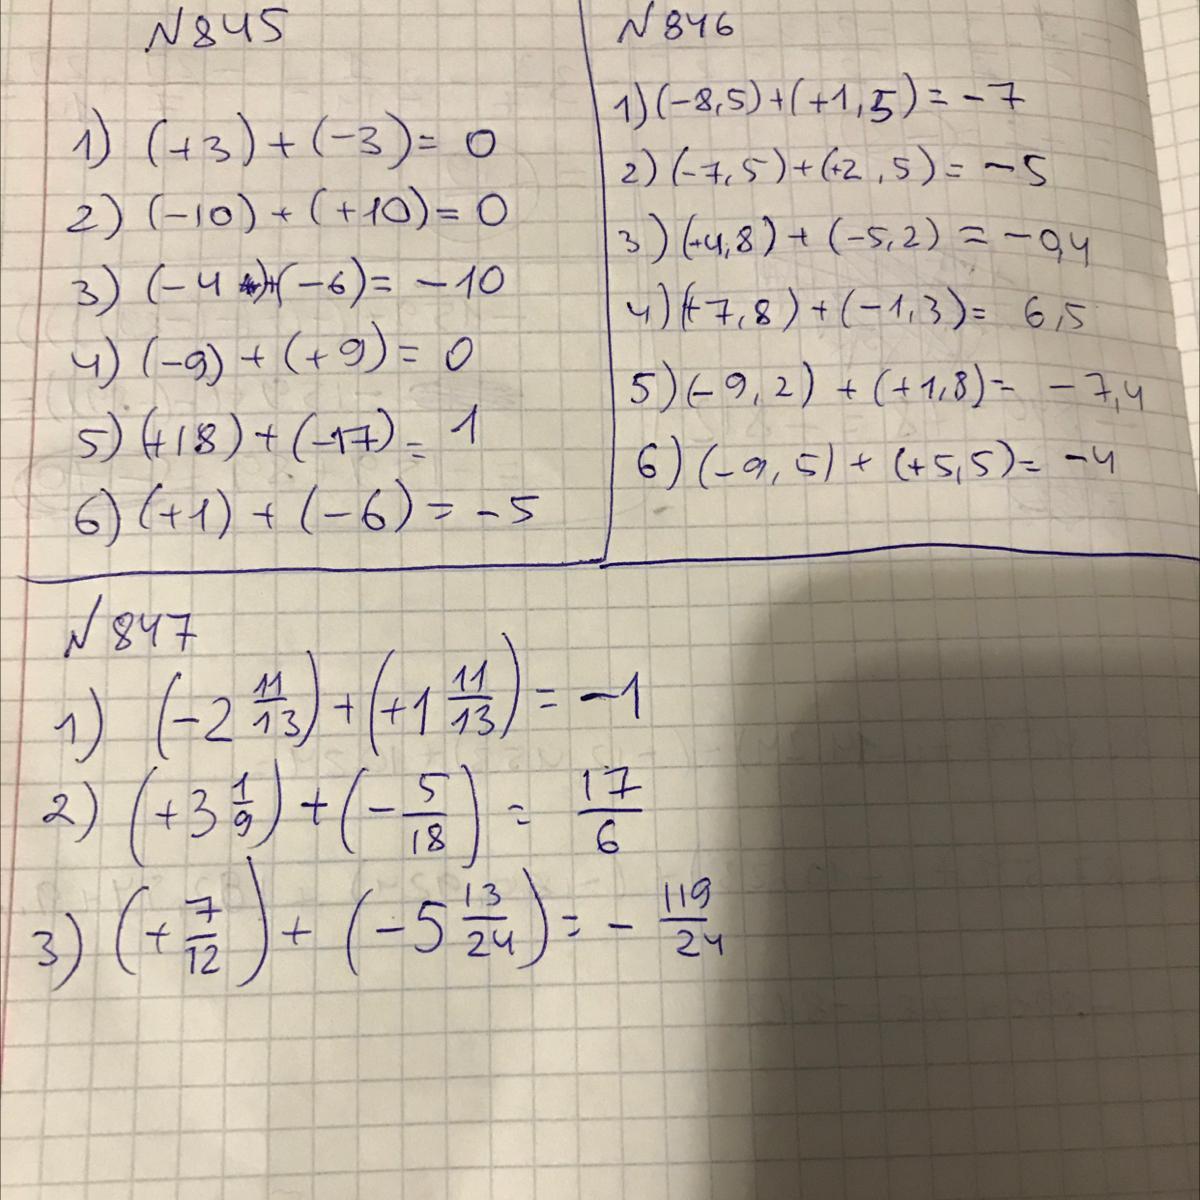 N 845
1) (+3) + (-3) = 0
2) (-10) + (+10) = 0
3) (-4)+(-6) = -10
4) (-9) + (+9) = 0
5) (+18) + (-17) = 1
6) (+1) + (-6) = -5
N 846
1) (-8,5) + (+1,5) = -7
2) (-7,5) + (+2,5) = -5
3) (+4,8) + (-5,2) = -0,4
4) (+7,8) + (-1,3) = 6,5
5) (-9,2) + (+1,8) = -7,4
6) (-9,5) + (+5,5) = -4
N 847
1) (-2 11/13) + (+1 11/13) = -1
2) (+3 1/9) + (-5/18) = 17/6
3) (+7/12) + (-5 13/24) = -119/24